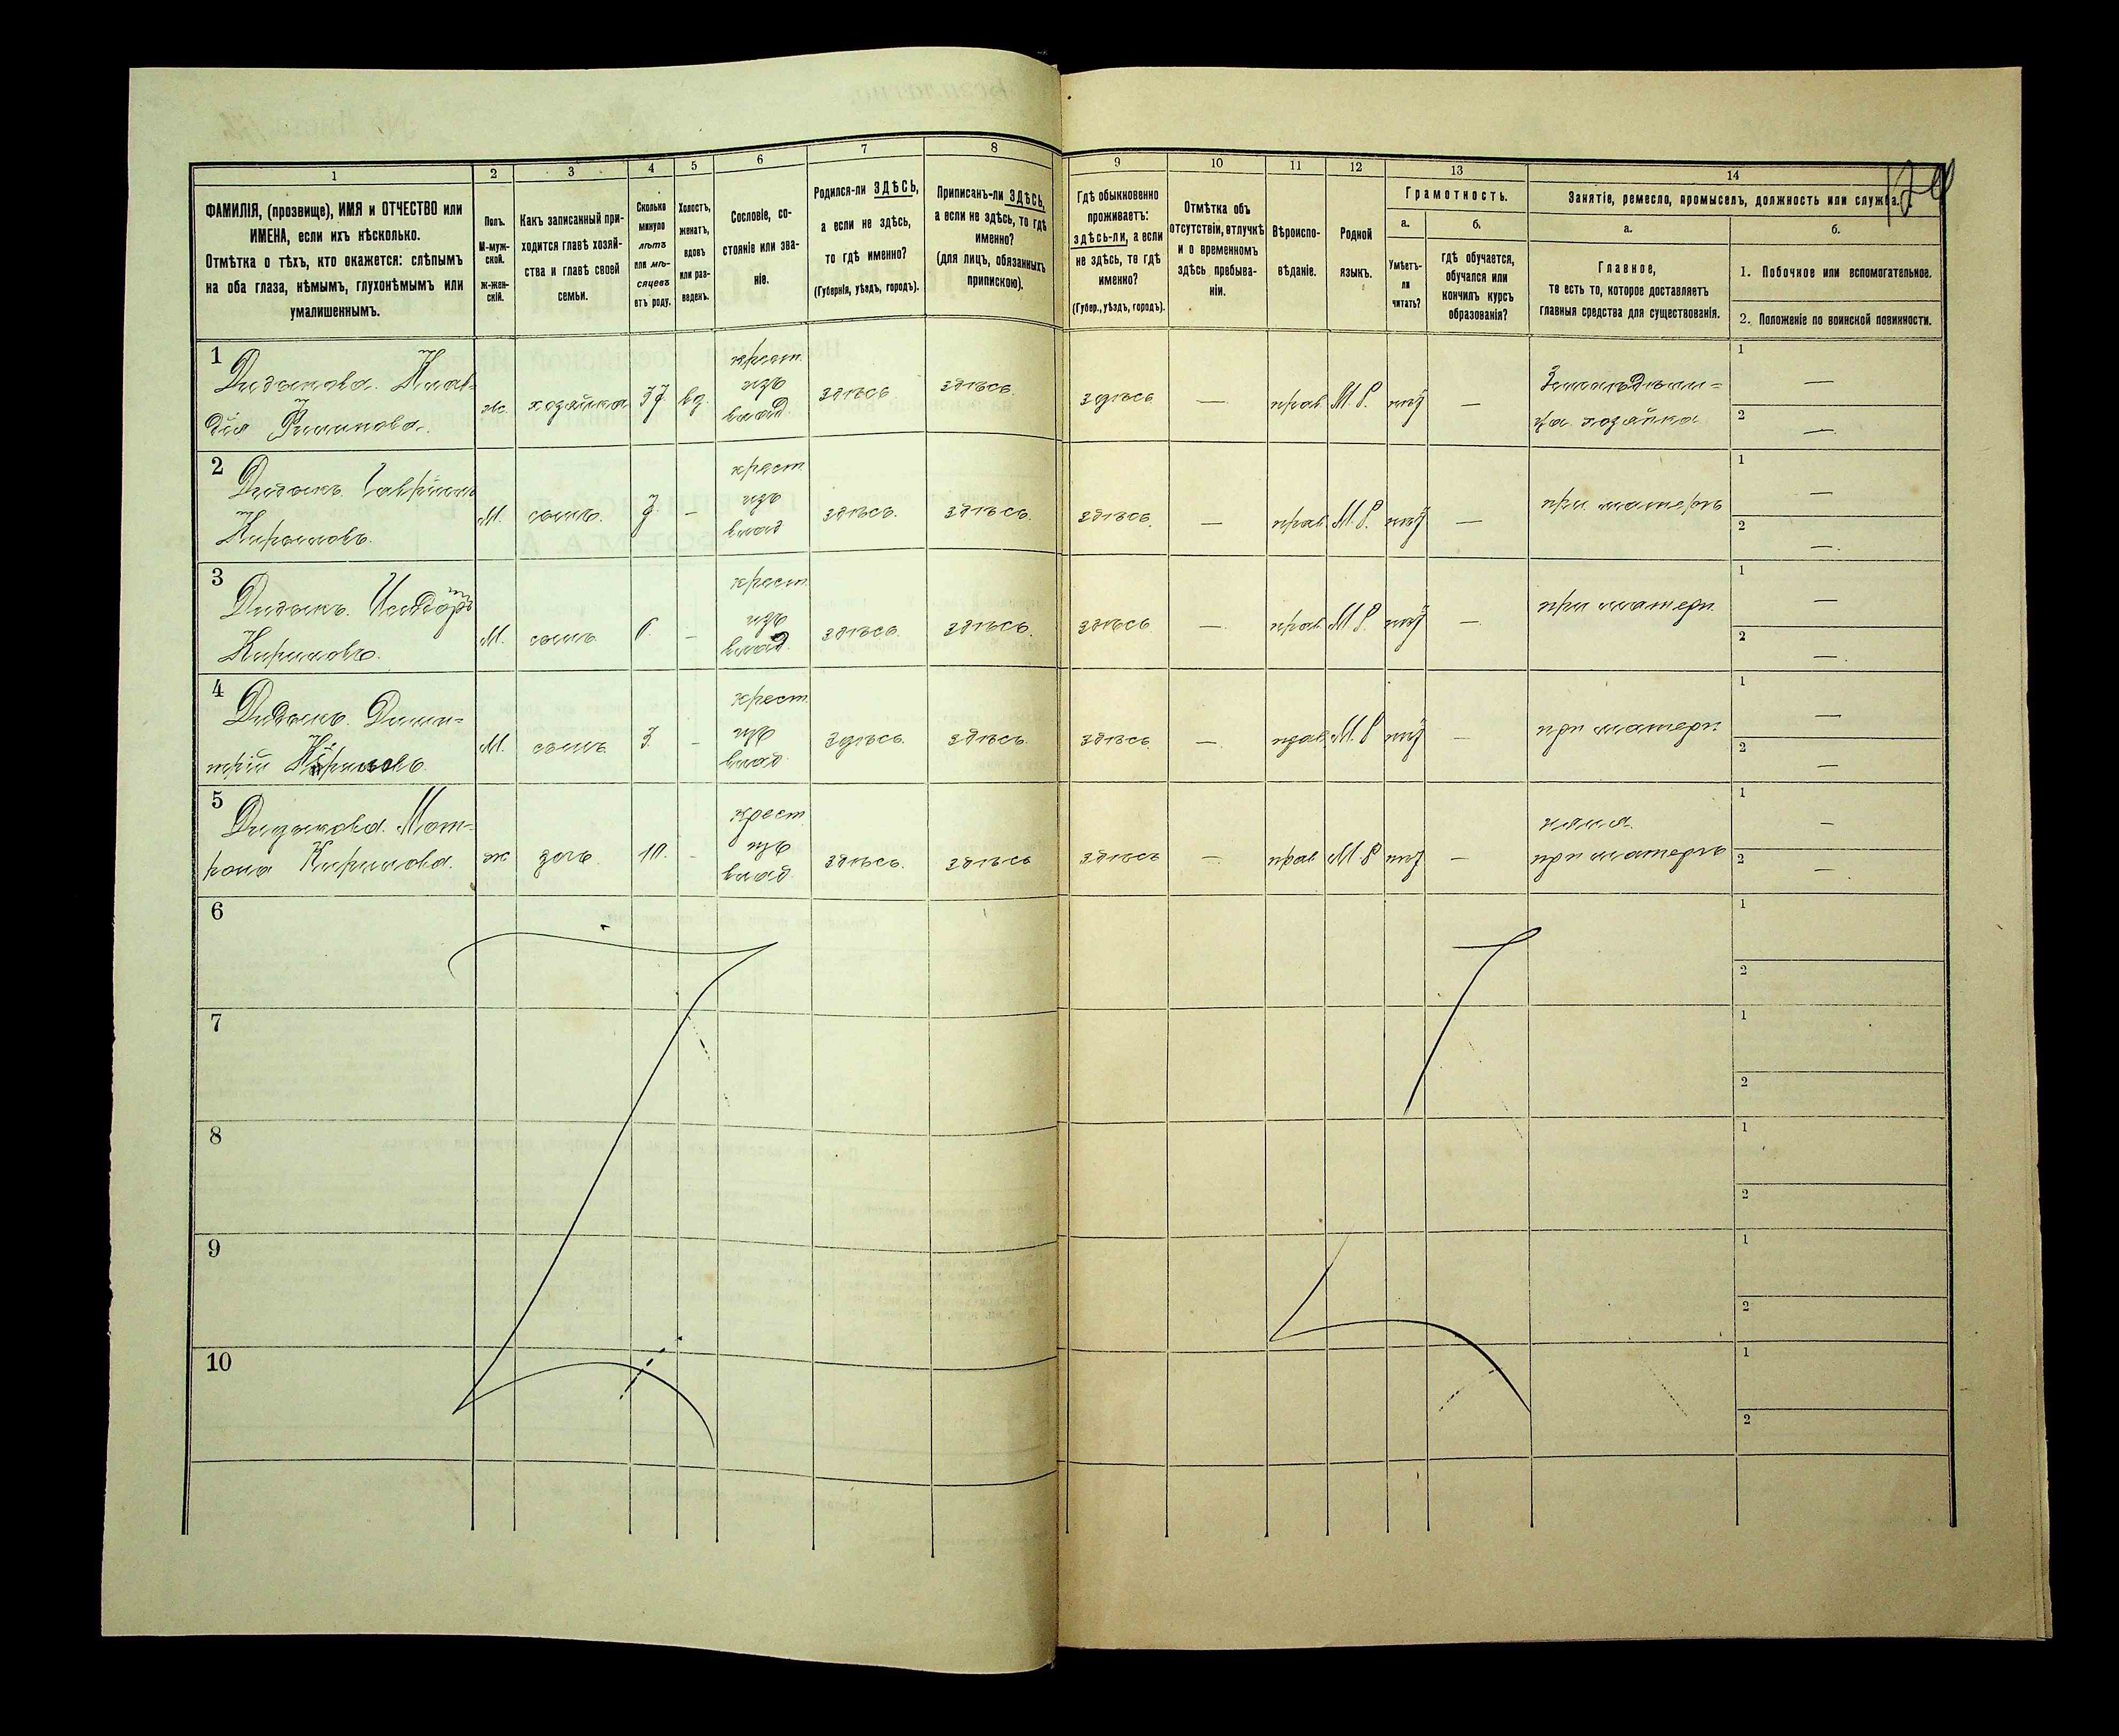 1
ФАМИЛІЯ, (прозвище), ИМЯ и ОТЧЕСТВО или
ИМЕНА, если ихъ нѣсколько.
Отмѣтка о тѣхъ, кто окажется: слѣпымъ
на оба глаза, нѣмымъ, глухонѣмымъ или
умалишеннымъ.
2
Полъ.
М-муж-
ской.
Ж-жен-
скій.
3
Какъ записанный при-
ходится главѣ хозяй-
ства и главѣ своей
семьи.
4
Сколько
минуло
лѣтъ
или мѣ-
сяцевъ
отъ роду.
5
Холостъ,
женатъ,
вдовъ
или раз-
веденъ.
6
Сословіе, со-
стояніе или зва-
ніе.
7
Родился-ли ЗДѢСЬ,
а если не здѣсь,
то гдѣ именно?
(Губернія, уѣздъ, городъ).
8
Приписанъ-ли ЗДѢСЬ,
а если не здѣсь, то гдѣ
именно?
(для лицъ, обязанныхъ
припискою).
9
Гдѣ обыкновенно
проживаетъ:
здѣсь-ли, а если
не здѣсь, то гдѣ
именно?
(Губер., уѣздъ, городъ).
10
Отмѣтка объ
отсутствіи, отлучкѣ
и о временномъ
здѣсь пребыва-
ніи.
11
Вѣроиспо-
вѣданіе.
12
Родной
языкъ.
13
Грамотность.
а.
Умѣетъ-
ли
читать?
б.
гдѣ обучается,
обучался или
кончилъ курсъ
образованія?
14
Занятіе, ремесло, промыселъ, должность или служба.
а.
Главное,
то есть то, которое доставляетъ
главныя средства для существованія.
б.
1. Побочное или вспомогательное.
2. Положеніе по воинской повинности.
1
Дидыкова Клав-
дія
ж. хозяйка 37 вд.
крест.
изъ
влад.
здѣсь здѣсь здѣсь — прав. М.Р. нѣтъ —
Земледѣли-
ца хозяйка
1 —
2 —
2
Дидыкъ Гавріилъ
Кириловъ.
М. сынъ. 7 —
крест
изъ
влад
здѣсь. здѣсь. здѣсь. — прав. М.Р. нѣтъ —
при матерѣ
1 —
2 —
3
Дидыкъ.
Кириловъ.
М. сынъ 6. —
крест.
изъ
влад.
здѣсь. здѣсь. здѣсь — прав. М.Р. нѣтъ —
при матери
1 —
2 —
4
Дидыкъ. Дими-
трій Кириловъ.
М. сынъ 3. —
крест
изъ
влад.
здѣсь. здѣсь. здѣсь. — прав. М.Р. нѣтъ —
при матери
1 —
2 —
5
Дидыкова. Мат-
рона Кирилова.
ж дочь. 10. —
крест
изъ
влад.
здѣсь. здѣсь здѣсь — прав М Р нѣтъ —
няня.
при матерѣ
1 —
2 —
6
1
2
7
1
2
8
1
2
9
1
2
10
1
2